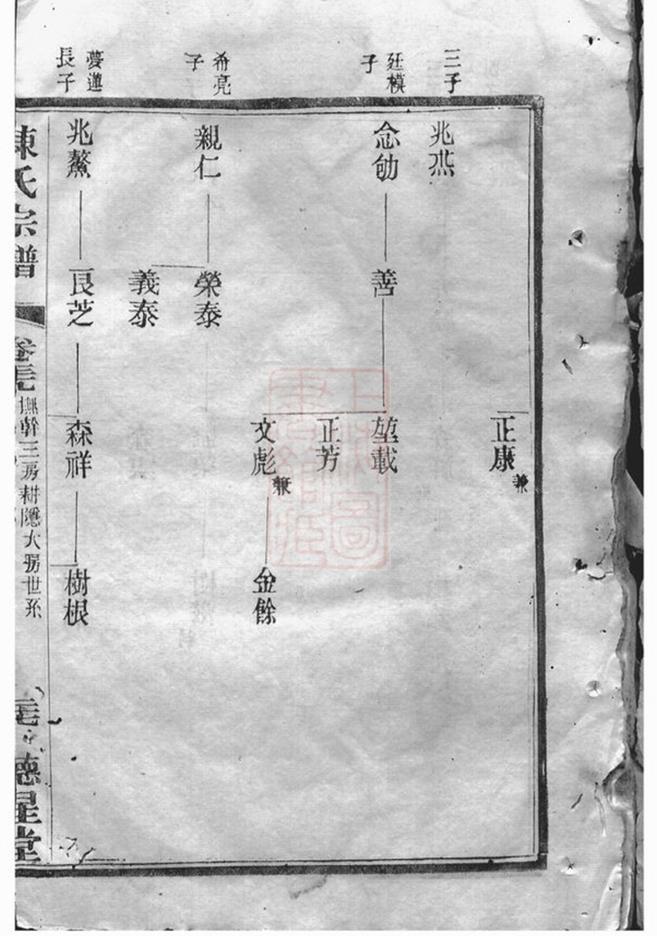 三子
兆燕
正康
兼
廷模
子
念劬
善
堃載
正芳
文彪
兼
金餘
希亮
子
親仁
榮泰
義泰
夢蓮
長子
兆鰲
良芝
森祥
樹根
陳氏宗譜
撫幹三房耕隱大房世系
德星堂
上海圖書館藏